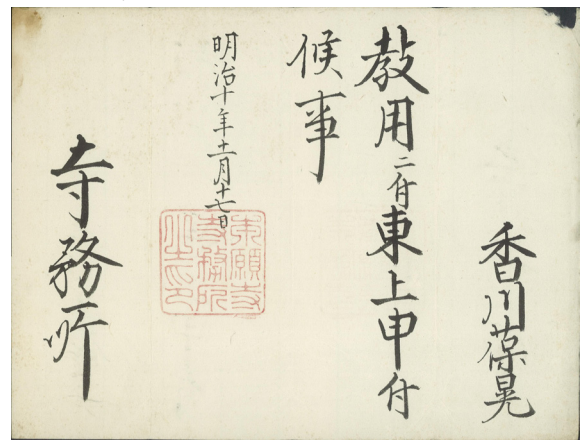 香川葆晃
教用ニ付東上申付
候事
明治十年十一月十七日
寺務所
本願寺
寺務所